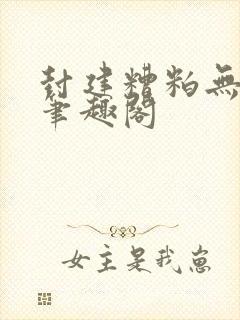 封建糟粕無
筆趣閣
女主是我崽